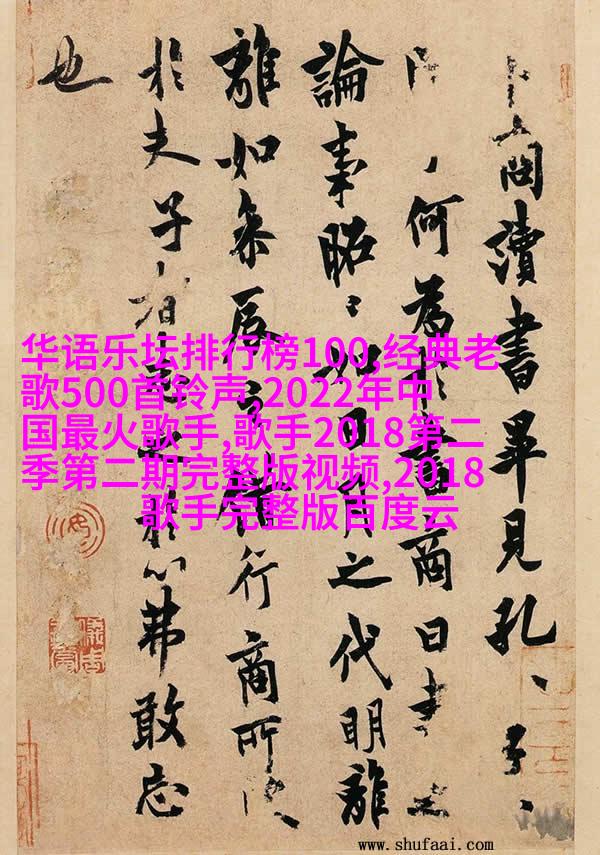 商讀書畢見孔子
何為於書商曰書之
論事昭〻如日月之代明離
離如參辰之錯行商所
於夫子 於心弗敢忘
也
华语乐坛排行榜100,经典老
歌500首铃声,2022年中
国最火歌手,歌手2018第二
季第二期完整版视频,2018
歌手完整版百度云
www.shufaai.com